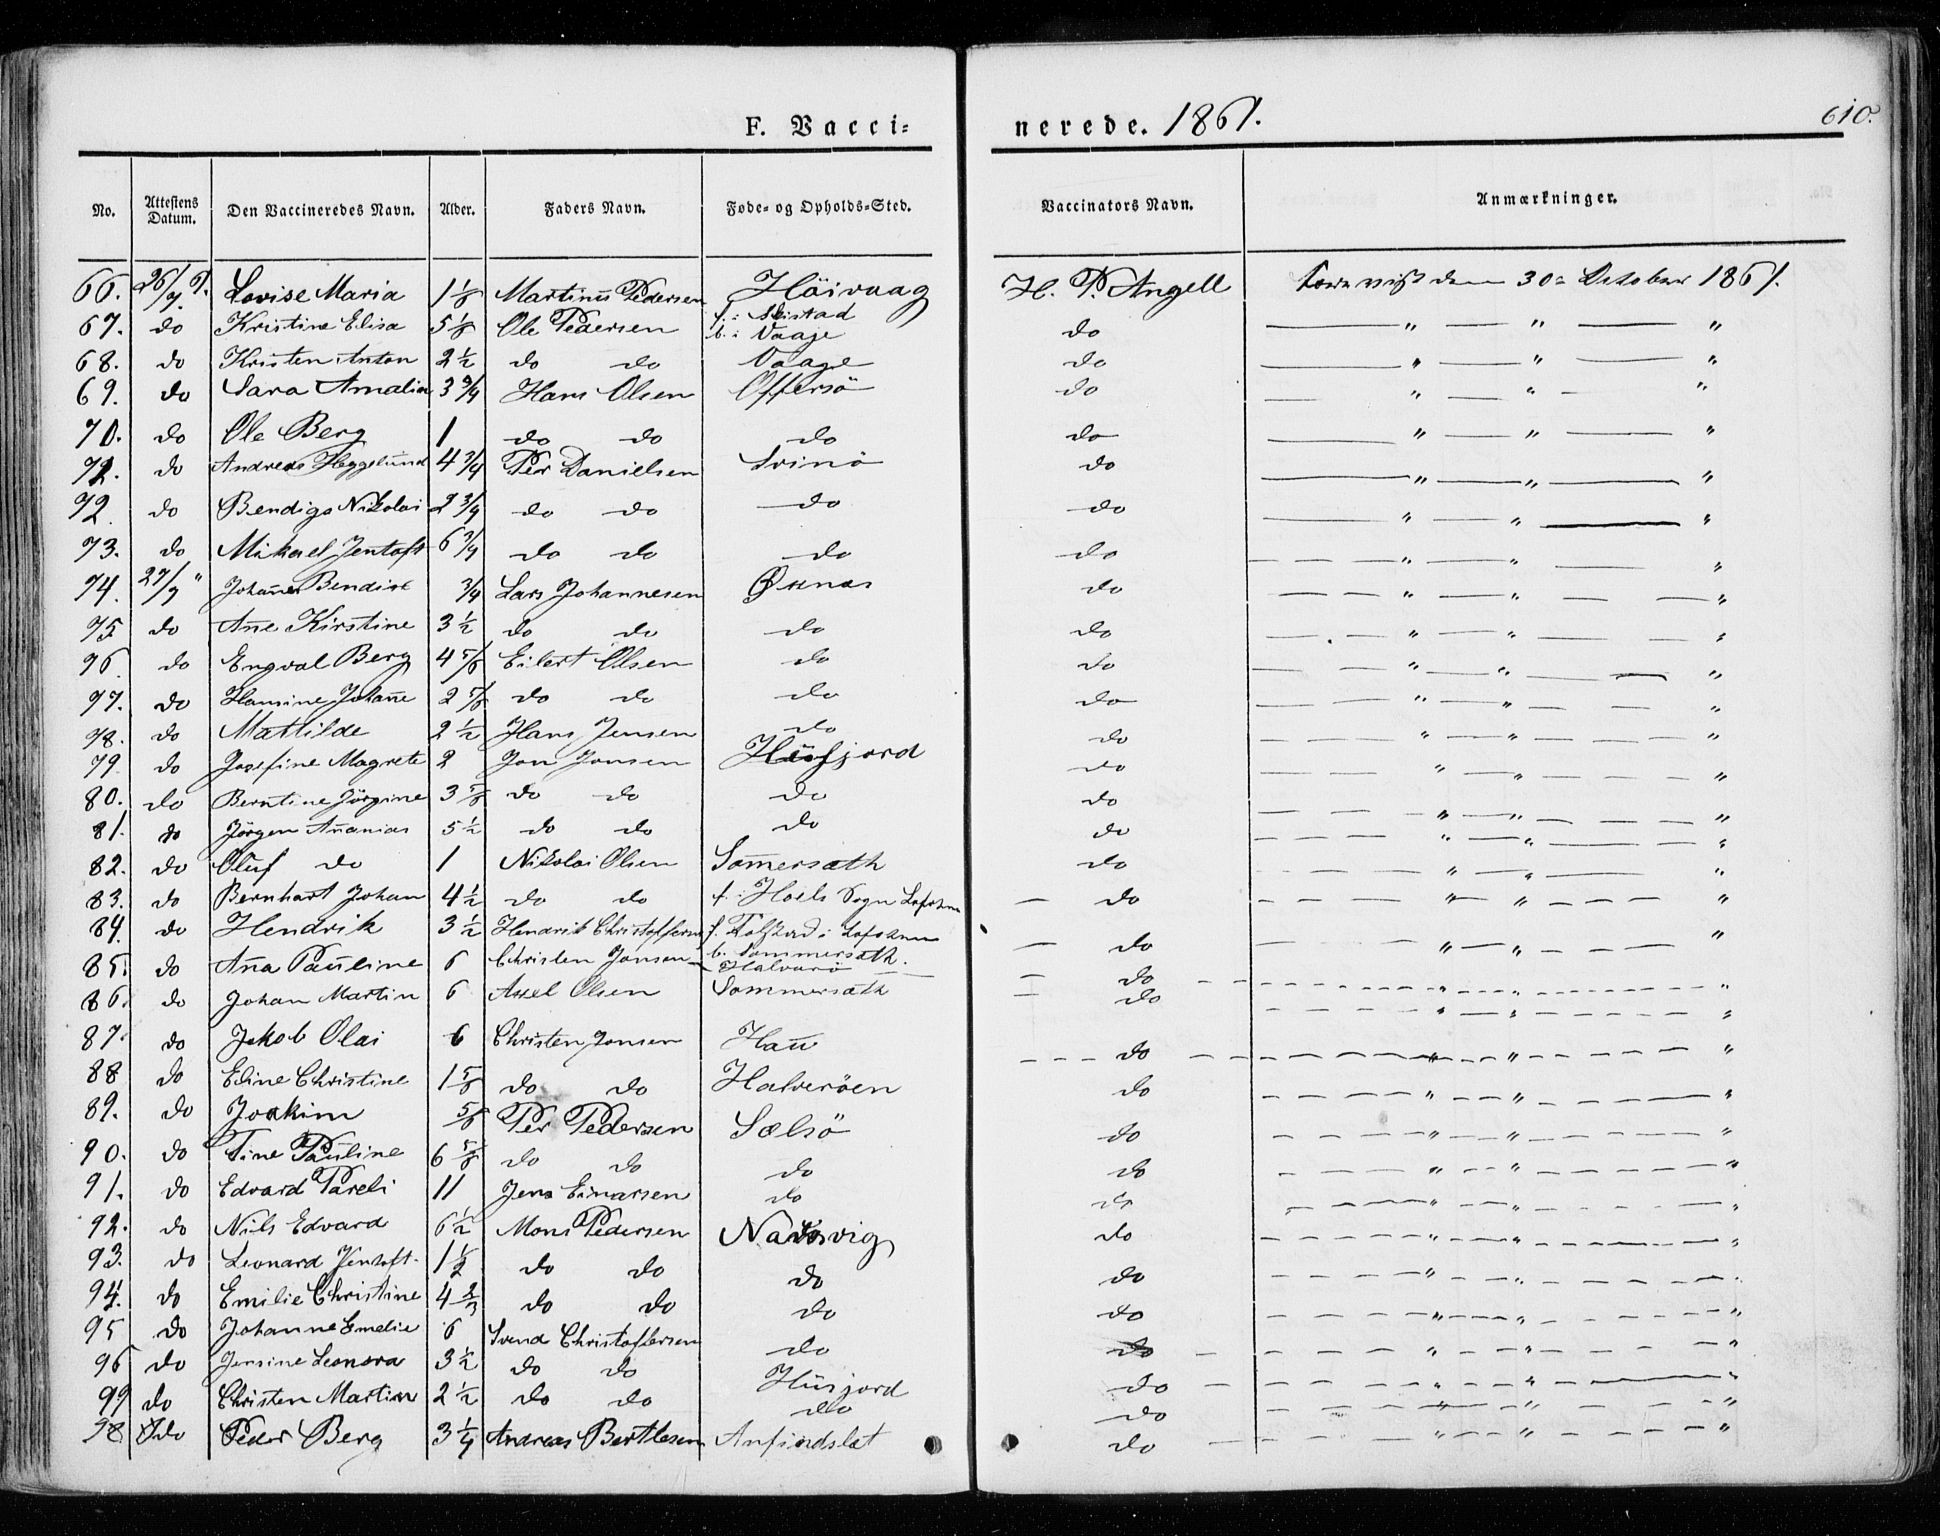 F. Vacci= nerede. 1861. 610.
No. Attestens Datum. Den Vaccineredes Navn. Alder. Faders Navn. Føde- og Opholds-Sted. Vaccinators Navn. Anmærkninger.
66. 26/7 Lovise Maria 1 1/8 Martinus Pedersen Höivaag H. P. Angell den 30 October 1861.
67. do Kristine Elisa 5 1/8 Ole Pedersen f.: b.: Vaaje do — " — " — "
68. do Kristen Anton 2 1/2 do do Vaage do — " — " — "
69. do Sara Amalia 3 3/4 Hans Olsen Offersö do — " — " - "
70. do Ole Berg 1 do do do do — " — " — "
72. do Andreas Heggelund 4 3/4 Per Danielsen Svinö do — " — " — "
72. do Bendigs Nikolai 2 3/4 do do do do — " — " — "
73. do Mikael Jentoft 6 3/4 do do do do — " — " — "
74. 27/7 " Johannes Bendix 3/4 Lars Johannesen Øxnes do — " — " — "
75 do Ane Kirstine 3 1/2 do do do do — " — " — "
76. do Engval Berg 4 5/6 Eilert Olsen do do — " — " — "
77. do Hansine Johane 2 5/8 do do do do — " — " — "
78. do Mattilde 2 1/2 Hans Jensen do do — " — " — "
79 do Josefine Magrete 2 Jon Jonsen Husfjord do — " — " — "
80. do Berntine Jörgine 3 5/8 do do do do — " — " — "
81. do Jörgen Ananias 5 1/2 do do do do — " — " — "
82. do Oluf do 1 Nikolai Olsen Somersæth do — " — " — "
83. do Bernhart Johan 4 1/2 do do f.: Hoels Sogn Lofoten — do — " — " — "
84. do Hendrik 3 1/2 Hendrik Christoffersen f. i Lofoten b. Sommersæth. — do — " — " — "
85. do Ana Pauline 6 Christen Jonsen Halvarö — do — " — " — "
86. do Johan Martin 6 Axel Olsen Sommersæth — do — " — " — "
87. do Jakob Olai 6 Christen Jonsen Hau — do — " — " — "
88 do Eline Christine 1 5/8 do do Halveröen do — " — " — "
89. do Joakim 5/8 Per Pedersen Sælsö do — " — " — "
90. do Tine Pauline 6 5/8 do do do do — " — " — "
91. do Edvard Pareli 11 Jens Einarsen do do — " — " — "
92. do Nils Edvard 6 1/2 Mons Pedersen do — " — " — "
93. do Leonard Jentoft 1 1/2 do do do do — " — " — "
94. do Emilie Christine 4 2/3 do do do do — " — " — "
95 do Johanne Emelie 6 Svend Christoffersen do do — " — " — "
96 do Jensine Leonora 3 1/2 do do Husjord do — " — " — "
97 do Christen Martin 2 1/2 do do do do — " — " — "
98 do Peder Berg 3 1/4 Andreas Bertlesen Anfindslet do — " — " — "